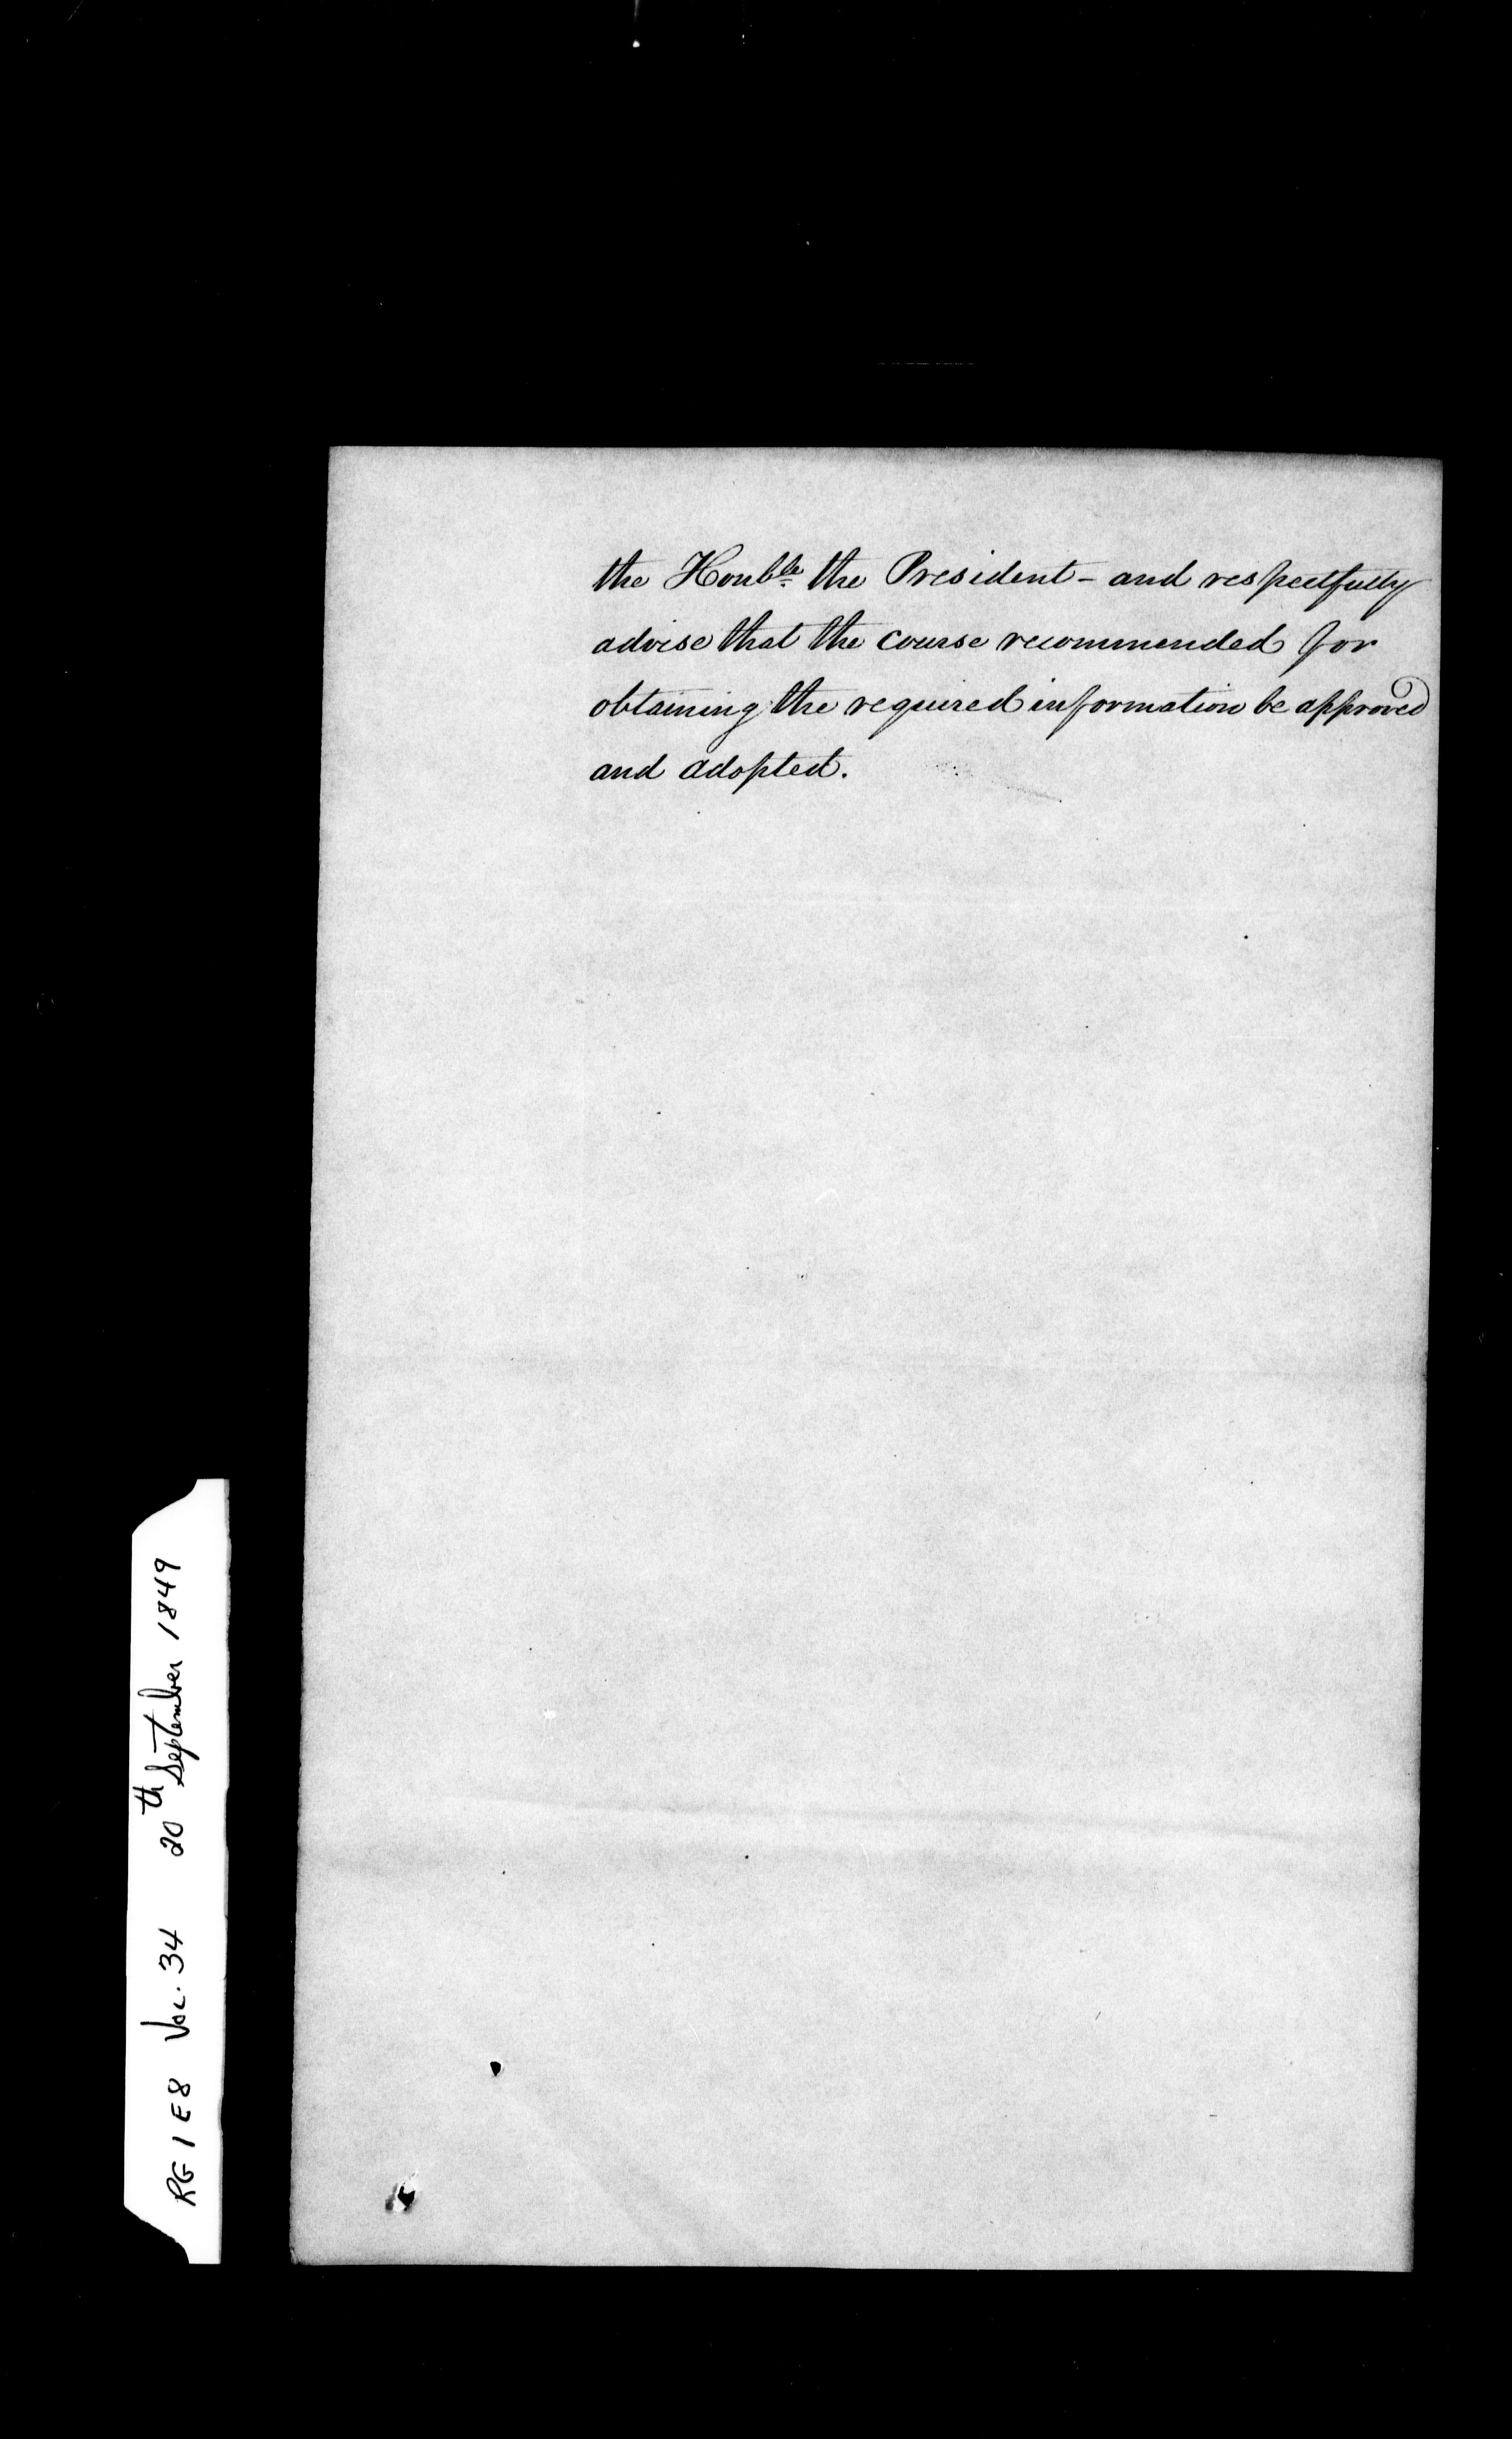 the Honble the President - and respectfully
advise that the course recommended for
obtaining the required information be approved
and adopted.
RG 1 E8 Vol. 34 20th September 1849